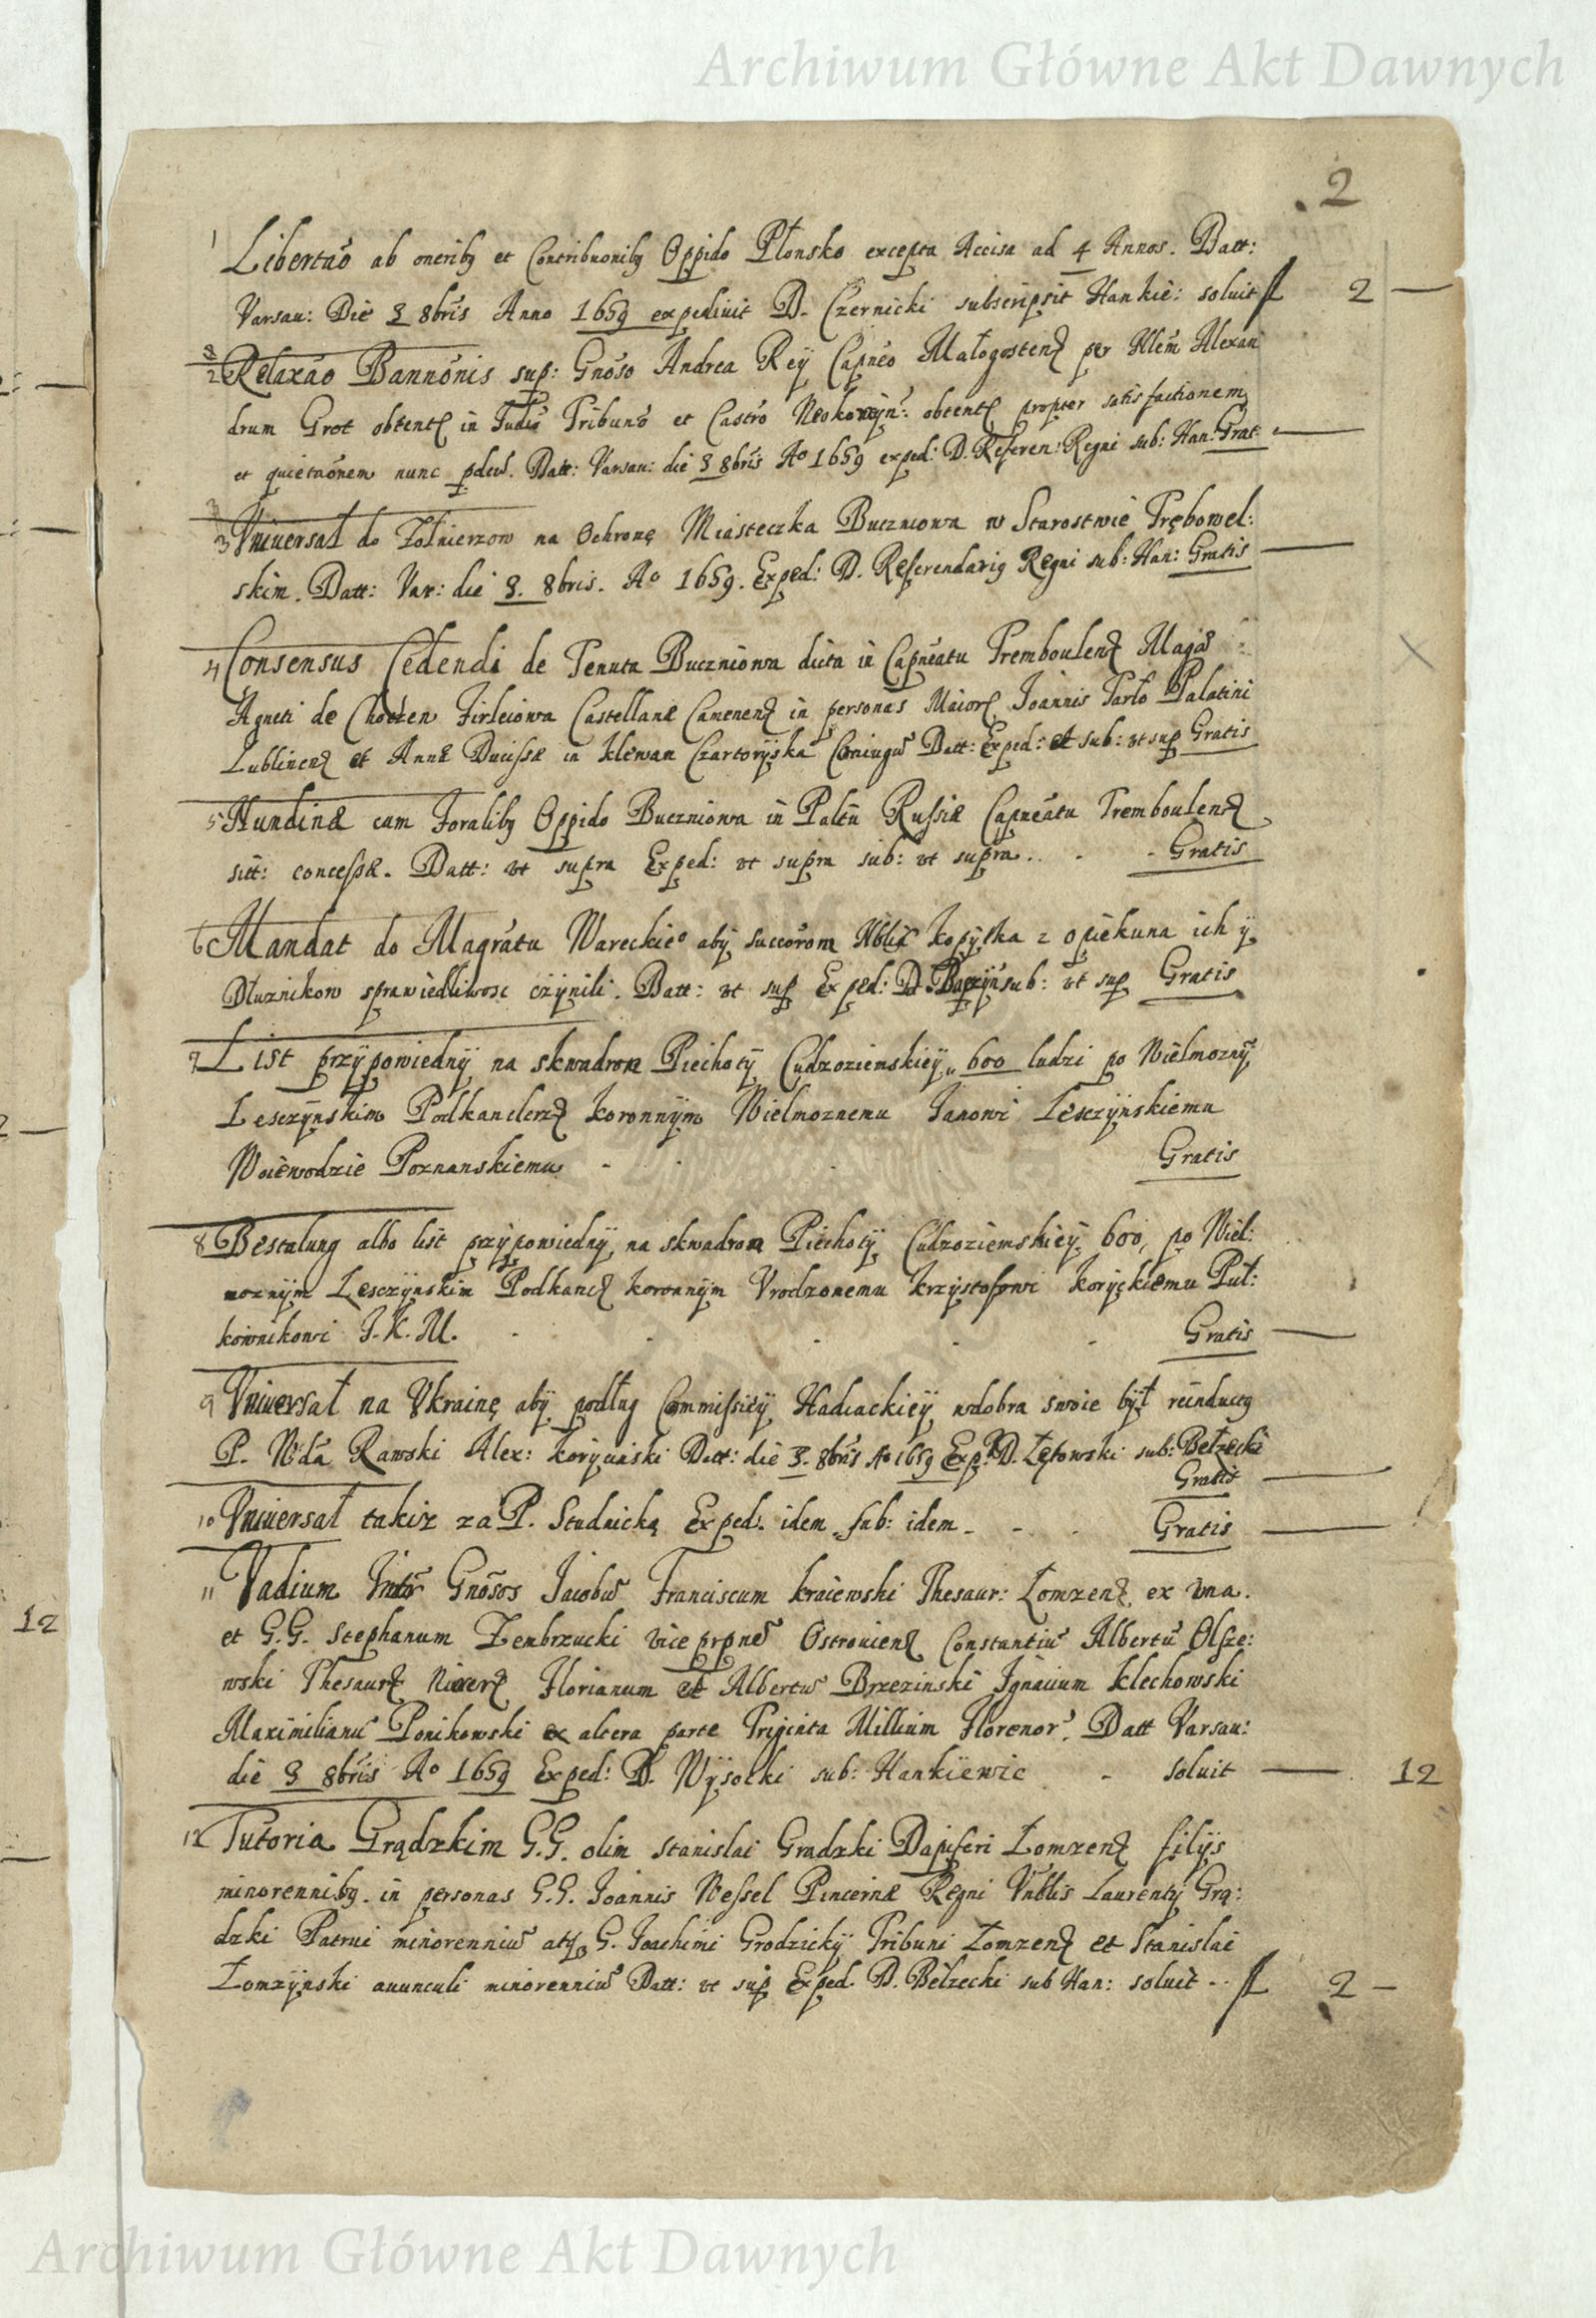 Archiwum Główne Akt Dawnych
2
1 Libertaõ ab oneribq et Contribuonibq Oppido Płonsko excepta Accisa ad 4 Annos. Datt:
Varsau: Die 3 8bris Anno 1659 expediuit D. Czernicki subscripsit Hankie: soluit fl 2 —
2 Relaxaõ Bannõnis sup: Gnõso Andrea Reÿ Capneo Małogosten per Illem Alexan
drum Grot obtent in Iudio Tribunõ et Castrõ obtent propter satisfactionem
et quietaõnem nunc Datt: Varsau: die 3 8bris Aº 1659 exped: D. Referen: Regni sub: Han: Grat:
3 Vniuersał do Zołnierzow na Ochronę Miasteczka Buczniowa w Starostwie Trębowel:
skim. Datt: Var: die 3. 8bris. Aº 1659. Exped: D. Referendarig Regni sub: Han: Gratis
4 Consensus Cedendi de Tenuta Buczniowa dicta in Capneatu Tremboulen Magã
Agneti de Firleiowa Castellanæ Camenen in personas Maior Ioannis Tarło Palatini
Lublinen et Annæ Ducissæ in Klewan Czartorÿska Coniugũ Datt: Exped: et sub: vt sup Gratis
5 Nundinæ cum Foralibq Oppido Buczniowa in Paltũ Russiæ Capneatu Tremboulen
sitt: concessæ. Datt: vt supra Exped: vt supra sub: vt supra. . - - Gratis
6 Mandat do Magrãtu Wareckieº abÿ succorom Kopÿtka z opiekuna ich ÿ
Dłuznikow sprawiedliwosc czÿnili. Datt: vt sup Exped: D. sub: vt sup Gratis
7 List przÿpowiednÿ na skwadron Piechotÿ Cudzoziemskieÿ 600 ludzi po Wielmoznÿm
Lesczÿnskim Podkanclerz Koronnÿm Wielmoznemu Janowi Lesczÿnskiemu
Woiewodzie Poznanskiemu - Gratis
8 Bestalung albo list przÿpowiednÿ na skwadron Piechotÿ Cudzoziemskieÿ 600, po Wiel:
moznÿm Lesczÿnskim Podkancl Koronnÿm Vrodzonemu Krzÿstofowi Korÿckiemu Puł:
kownikowi J. K. M. - - - - - Gratis
9 Vniuersał na Vkrainę abÿ podług Commissieÿ Hadiackieÿ wdobra swoie bÿł reinductg
P. Wda Rawski Alex: Korÿcinski Datt: die 3. 8bris Aº 1659 Exp: D. Łętowski sub: Bełzecki
Gratis
10 Vniuersał takiz za P. Studnicką Exped: idem sub: idem - - - Gratis
11 Vadium Inter Gnõsos Iacobũ Franciscum Kraiewski Thesaur: Łomzen, ex vna.
et G.G. Stephanum Zembrzucki vice Ostrouien Constantiũ Albertũ Olsze:
wski Thesaur Florianum et Albertũ Brzezinski Ignacium Klechowski
Maximilianũ Ponikowski ex altera parte Triginta Millium Florenor. Datt Varsau:
die 3 8bris Aº 1659 Exped: D. Wÿsocki sub: Hankiewic - soluit — 12
12 Tutoria Grądzkim G.G. olim Stanislai Gradzki Dapiferi Łomzen filÿs
minorennibq. in personas G.G. Ioannis Wessel Pincernæ Regni Laurentÿ Grą:
dzki Patrui minorenniũ atq G. Ioachimi Grodzickÿ Tribuni Łomzen et Stanislai
Łomzÿnski auunculi minorenniũ Datt: vt sup Exped. D. Bełzecki sub Han: soluit - - fl 2 —
12
Archiwum Główne Akt Dawnych